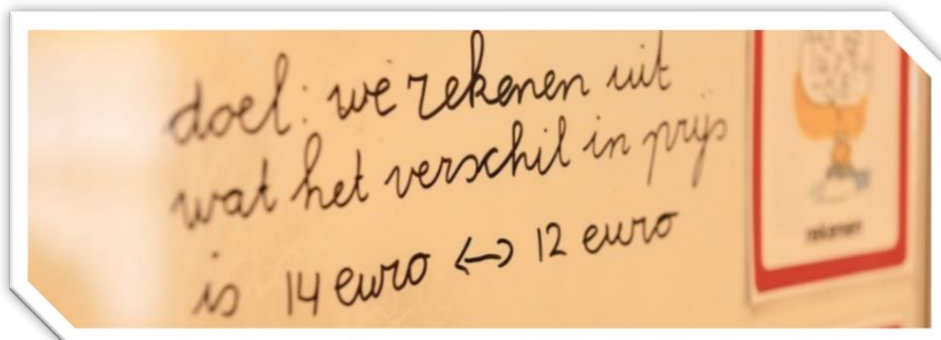 doel: we rekenen uit
wat het verschil in prijs
is 14 euro <-> 12 euro
rekenen